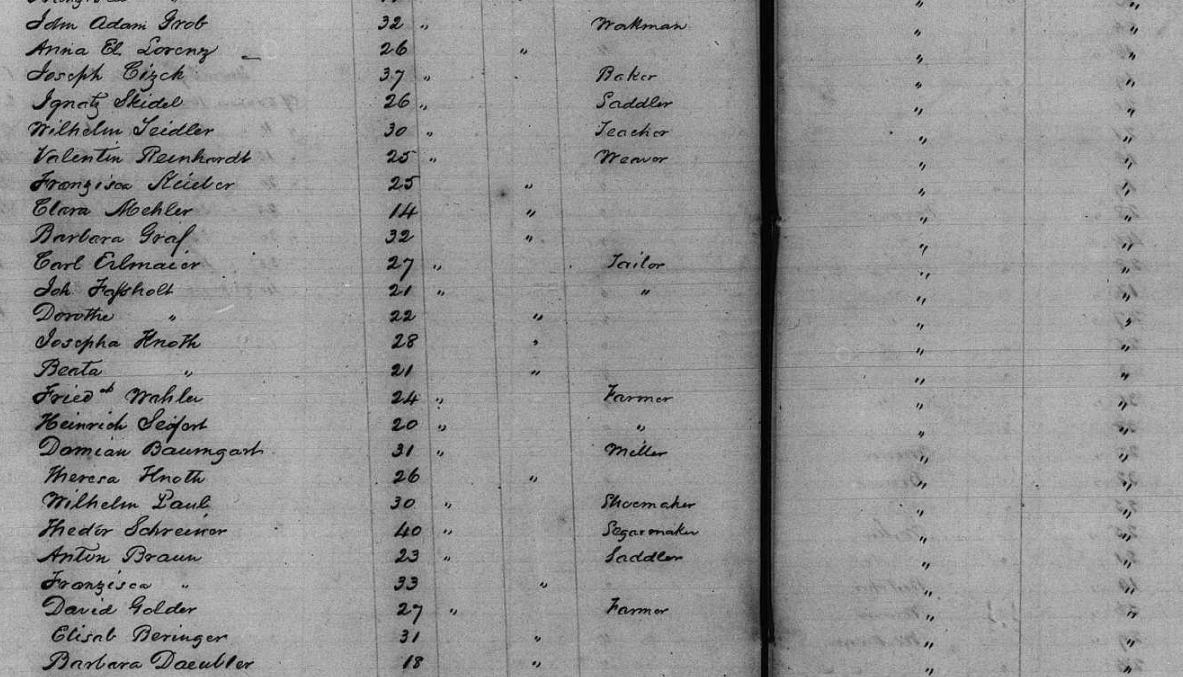 Adam Grob 32 " Workman " "
Anna El. Lorenz 26 " " "
Joseph Cizek 37 " Baker " "
Ignatz Skidel 26 " Saddler " "
Wilhelm Seidler 30 " Teacher " "
Valentin Reinhardt 25 " Weaver " "
Franzisca 25 " " "
Clara Mehler 14 " " "
Barbara Graf 32 " " "
Carl Erlmaier 27 " Tailor " "
Joh 21 " " " "
Dorothe " 22 " " "
Josepha Knoth 28 " " "
Beata " 21 " " "
Fried Wahler 24 " Farmer " "
Heinrich Seifert 20 " " " "
Damian Baumgart 31 " Miller " "
Theresa Knoth 26 " " "
Wilhelm Paul 30 " Shoemaker " "
Theodor Schreiner 40 " Segarmaker " "
Anton Braun 23 " Saddler " "
Franzisca " 33 " " "
David Golder 27 " Farmer " "
Elisab Beringer 31 " " "
Barbara Daeubler 18 " " "